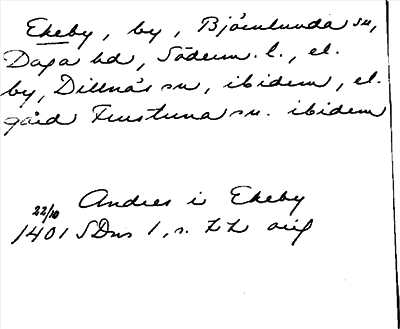 Ekeby, by, Björnlunda sn,
Daga hd, Söderm. l., el.
by, Dillnäs sn, ibidem, el.
gård Frustuna sn. ibidem
Andres i Ekeby
22/10
1401 SDns 1, s. 44 orig